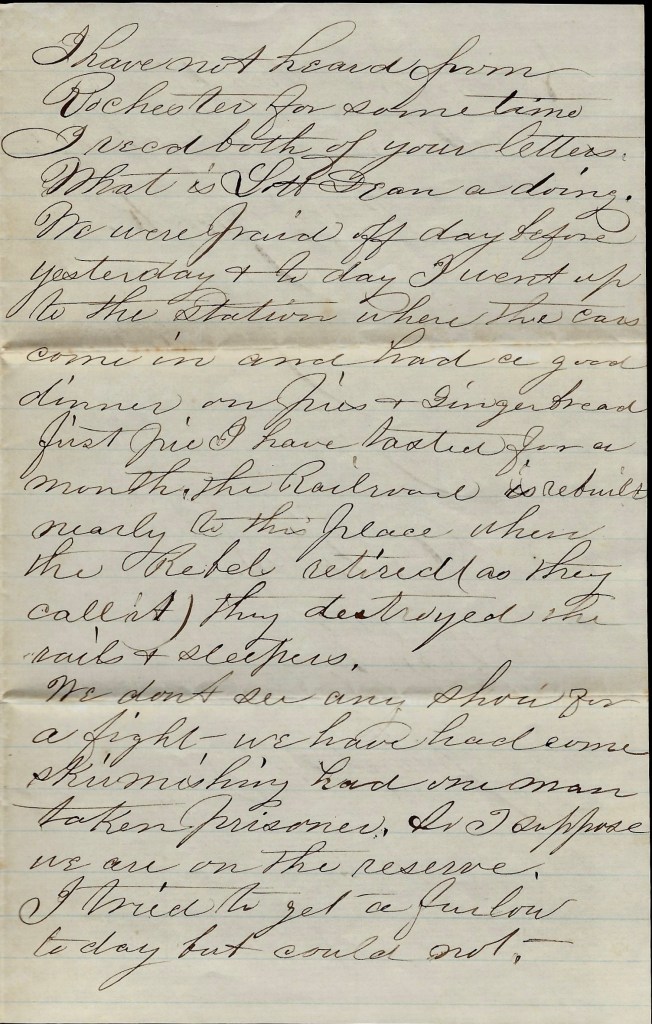 I have not heard from
Rochester for sometime
I recd both of your letters.
What is Lott Dean a doing.
We were Praid off day before
yesterday & to day I went up
to the Station where the cars
come in and had a good
dinner on Pies & Gingerbread
first pie I have tasted for a
month. the Railroad is rebuilt
nearly to this place when
the Rebels retired (as they
call it) they destroyed the
rails & sleepers.
We dont see any show for
a fight - we have had some
skirmishing had one man
taken prisoner. So I suppose
we are on the reserve.
I tried to get a furlow
to day but could not. -